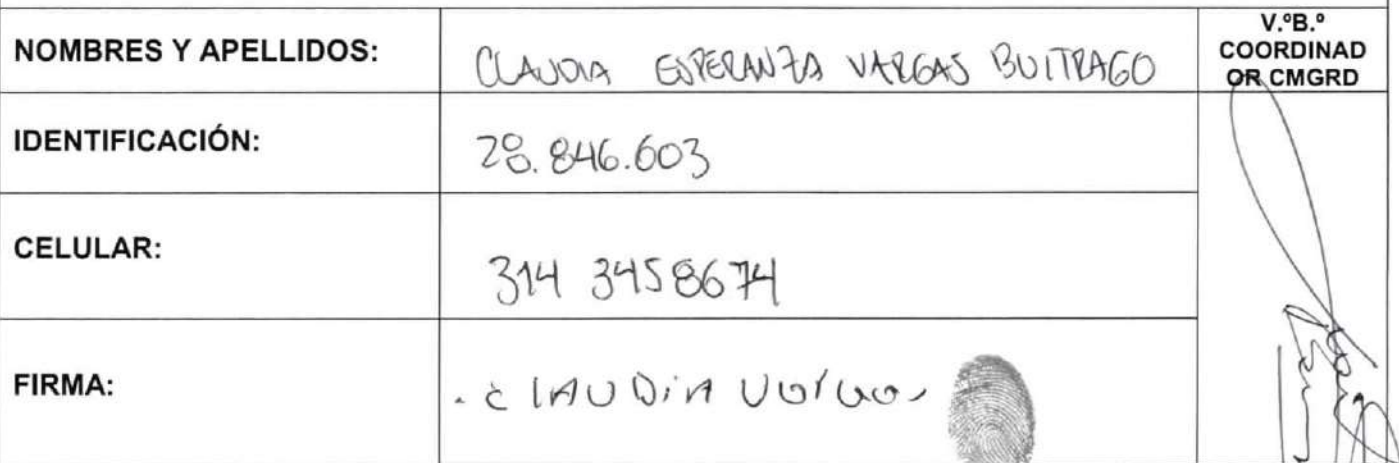 NOMBRES Y APELLIDOS: CLAUDIA ESPERANZA VARGAS BUITRAGO
V.ºB.º
COORDINAD
OR CMGRD
IDENTIFICACIÓN: 28.846.603
CELULAR: 314 3458674
FIRMA: CLAUDIA